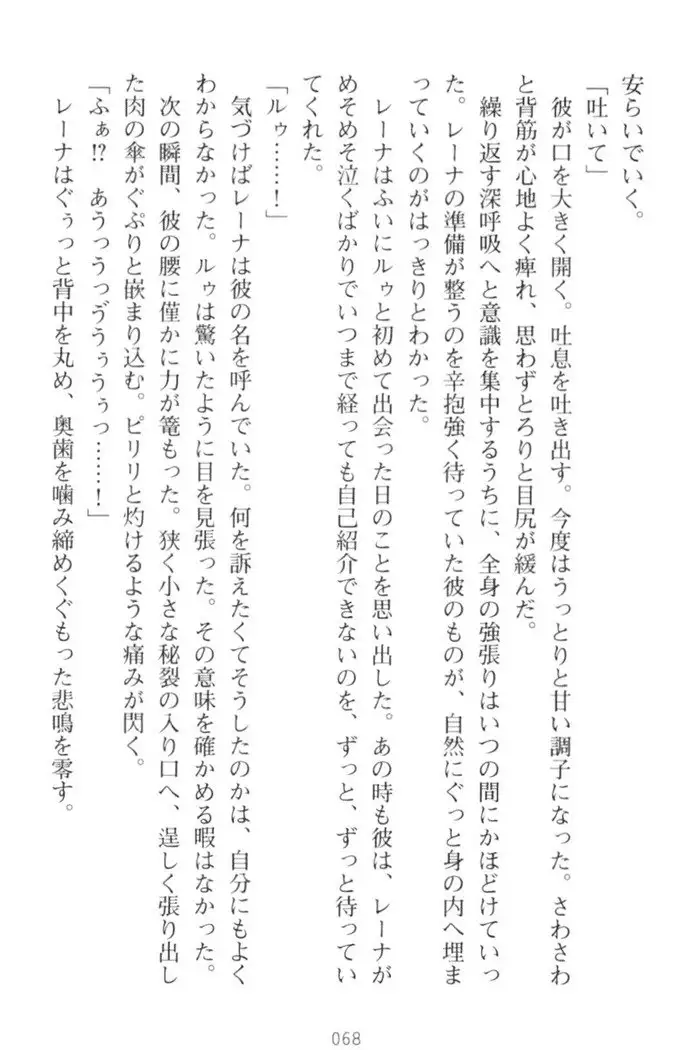 安らいでいく。
「吐いて」
彼が口を大きく開く。吐息を吐き出す。今度はうっとりと甘い調子になった。さわさわ
と背筋が心地よく痺れ、思わずとろりと目尻が緩んだ。
繰り返す深呼吸へと意識を集中するうちに、全身の強張りはいつの間にかほどけていっ
た。レーナの準備が整うのを辛抱強く待っていた彼のものが、自然にぐっと身の内へ埋ま
っていくのがはっきりとわかった。
レーナはふいにルゥと初めて出会った日のことを思い出した。あの時も彼は、レーナが
めそめそ泣くばかりでいつまで経っても自己紹介できないのを、ずっと、ずっと待ってい
てくれた。
「ルゥ……！」
気づけばレーナは彼の名を呼んでいた。何を訴えたくてそうしたのかは、自分にもよく
わからなかった。ルゥは驚いたように目を見張った。その意味を確かめる暇はなかった。
次の瞬間、彼の腰に僅かに力が篭もった。狭く小さな秘裂の入り口へ、逞しく張り出し
た肉の傘がぐぷりと嵌まり込む。ピリリと灼けるような痛みが閃く。
「ふぁ⁉　あうっうっゔうぅうぅっ……！」
レーナはぐぅっと背中を丸め、奥歯を噛み締めくぐもった悲鳴を零す。
068